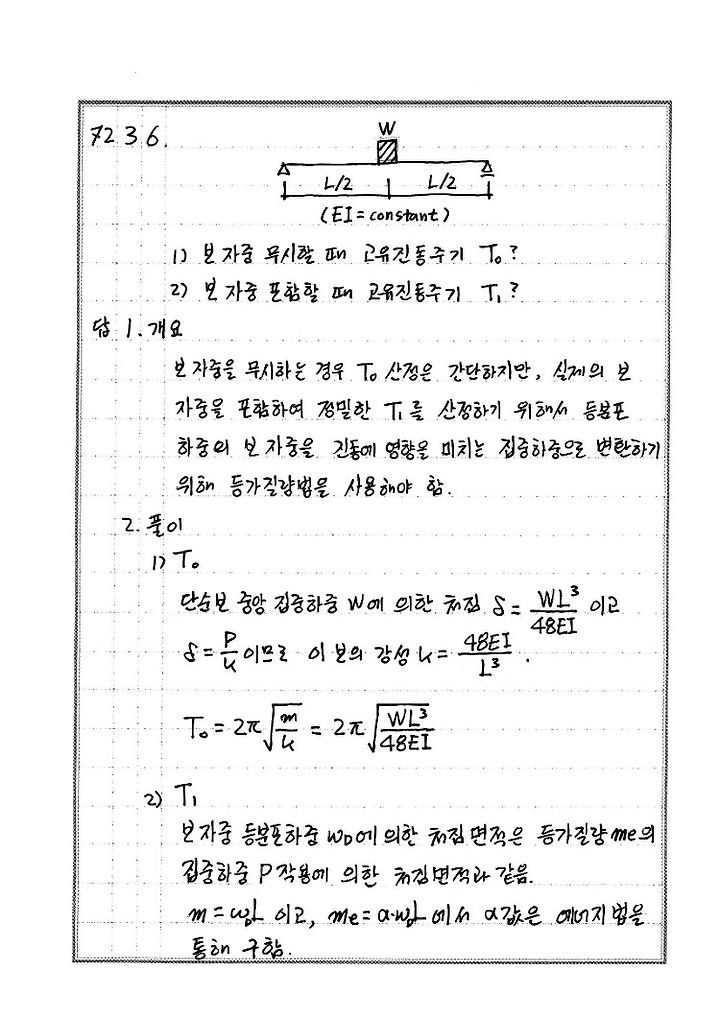 7236.
W
L/2 L/2
(EI = constant)
1) 보 자중 무시할 때 고유진동주기 T₀?
2) 보 자중 포함할 때 고유진동주기 T₁?
답 1. 개요
보 자중을 무시하는 경우 T₀ 산정은 간단하지만, 실제의 보
자중을 포함하여 정밀한 T₁를 산정하기 위해서 등분포
하중의 보 자중을 진동에 영향을 미치는 집중하중으로 변환하기
위해 등가질량법을 사용해야 함.
2. 풀이
1) T₀
단순보 중앙 집중하중 W에 의한 처짐 δ = WL³/48EI 이고
δ = P/k 이므로 이 보의 강성 k = 48EI/L³.
T₀ = 2π√(m/k) = 2π√(WL³/48EI)
2) T₁
보 자중 등분포하중 w_D에 의한 처짐 면적은 등가질량 me의
집중하중 P 작용에 의한 처짐면적과 같음.
m = w_DL 이고, me = α·w_DL 에서 α값은 에너지법을
통해 구함.